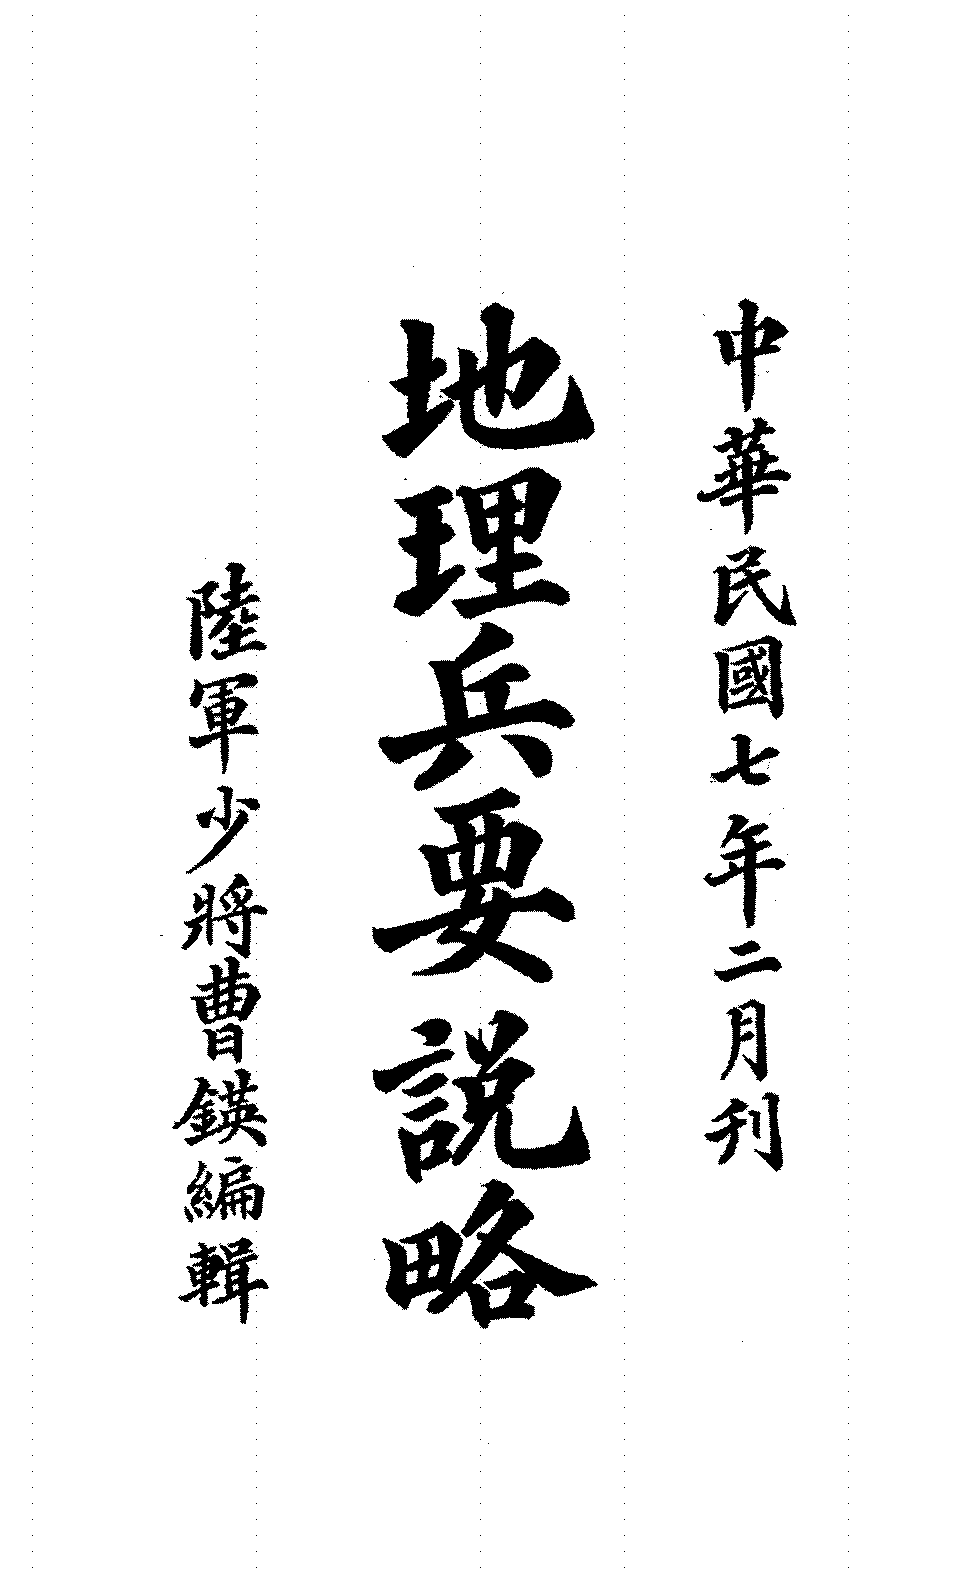 中華民國七年二月刊
地理兵要說略
陸軍少將曹鍈編輯